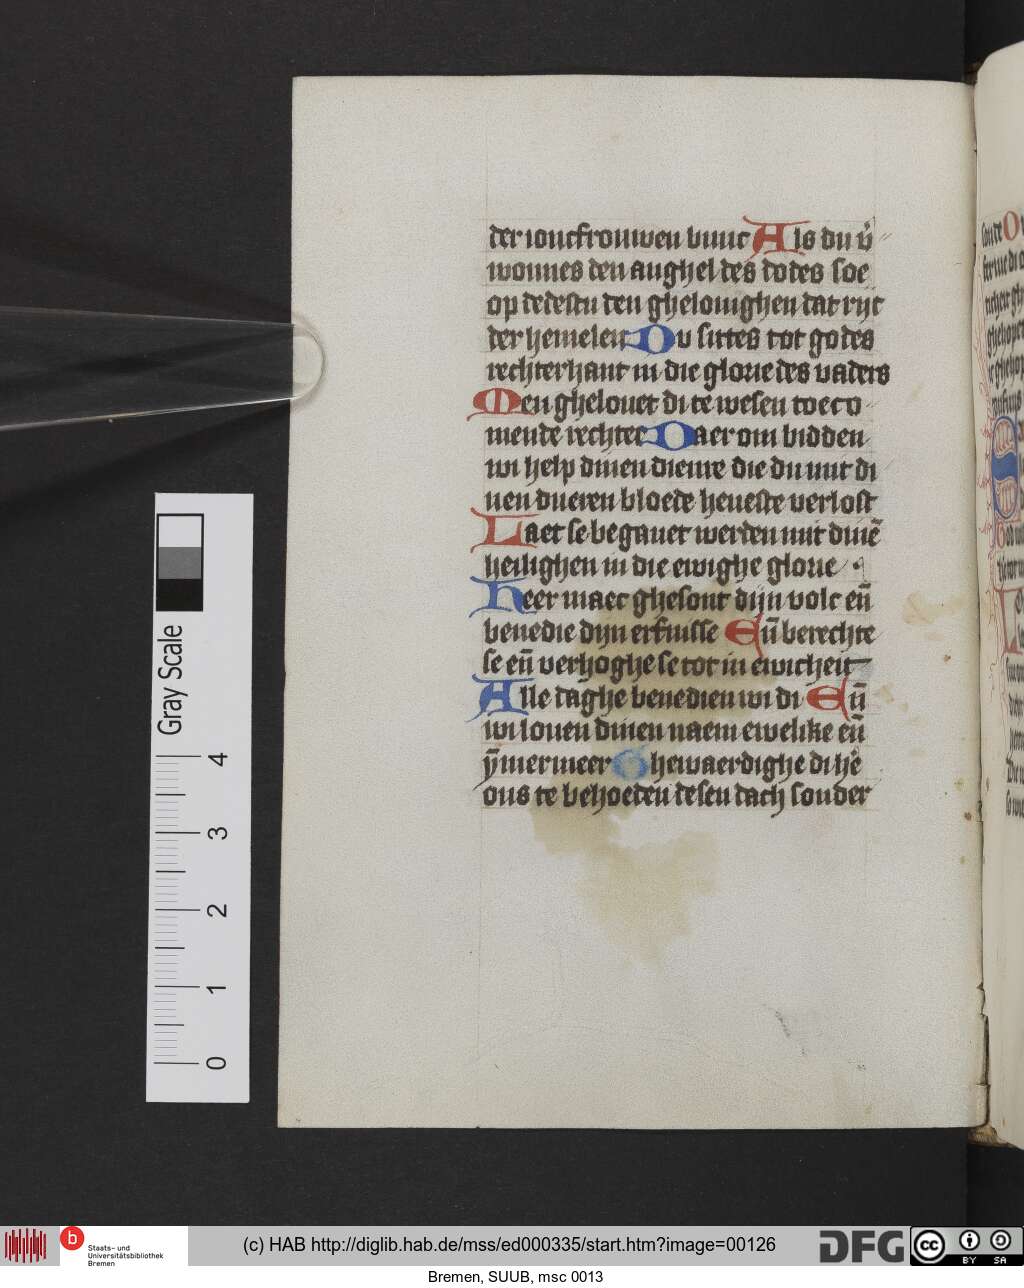 der ioncfrouwen buuc Als du v̄
wonnes den anghel des dodes soe
op dedestu den ghelouighen dat ryc
der hemelen Du sittes tot godes
rechterhant in die glorie des vaders
Men ghelouet di te wesen toeco
mende rechter Daer om bidden
wi help dinen dienre die du mit di
nen dueren bloede heueste verlost
Laet se begauet werden mit dinē
heilighen in die ewighe glorie
Heer maec ghesont dijn volc eñ
benedie dijn erfnisse Eñ berechte
se eñ verhoghe se tot in ewicheit
Alle daghe benedien wi di Eñ
wi louen dinen naem ewelike eñ
ȳmermeer Ghewaerdighe di hē
ons te behoeden desen dach sonder
Gray Scale
4
3
2
1
0
b
Staats- und
Universitätsbibliothek
Bremen
(c) HAB http://diglib.hab.de/mss/ed000335/start.htm?image=00126
DFG
cc BY SA
Bremen, SUUB, msc 0013